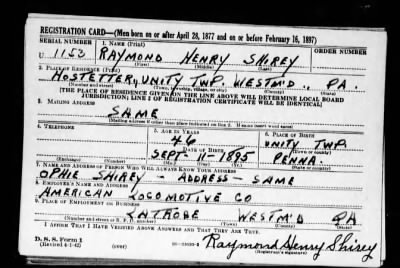 REGISTRATION CARD—(Men born on or after April 28, 1877 and on or before February 16, 1897)
SERIAL NUMBER 1. NAME (Print) ORDER NUMBER
U 1153 RAYMOND HENRY SHIREY
(First) (Middle) (Last)
2. PLACE OF RESIDENCE (Print)
HOSTETTER, UNITY TWP. WESTM'D., PA.
(Number and street) (Town, township, village, or city) (County) (State)
[THE PLACE OF RESIDENCE GIVEN ON THE LINE ABOVE WILL DETERMINE LOCAL BOARD
JURISDICTION; LINE 2 OF REGISTRATION CERTIFICATE WILL BE IDENTICAL]
3. MAILING ADDRESS
SAME
[Mailing address if other than place indicated on line 2. If same insert word same]
4. TELEPHONE 5. AGE IN YEARS 6. PLACE OF BIRTH
46 UNITY TWP.
DATE OF BIRTH (Town or county)
SEPT.-11-1895 PENNA.
(Exchange) (Number) (Mo.) (Day) (Yr.) (State or country)
7. NAME AND ADDRESS OF PERSON WHO WILL ALWAYS KNOW YOUR ADDRESS
OPHIE SHIREY - ADDRESS - SAME
8. EMPLOYER'S NAME AND ADDRESS
AMERICAN LOCOMOTIVE CO
9. PLACE OF EMPLOYMENT OR BUSINESS
LATROBE WESTM'D PA
(Number and street or R. F. D. number) (Town) (County) (State)
I AFFIRM THAT I HAVE VERIFIED ABOVE ANSWERS AND THAT THEY ARE TRUE.
D. S. S. Form 1
(Revised 4-1-42) (over) Raymond Henry Shirey
(Registrant's signature)